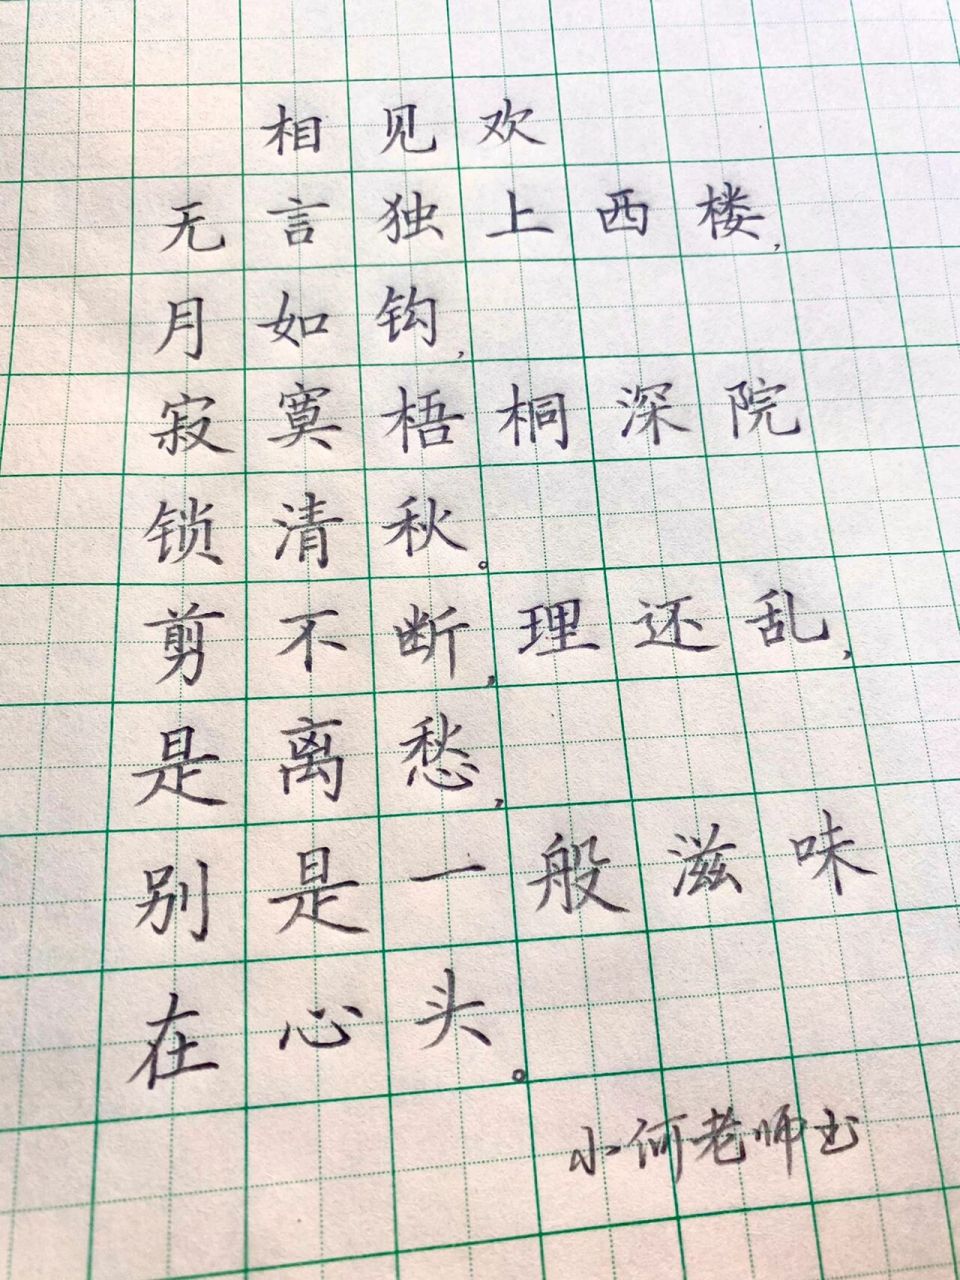 相见欢
无言独上西楼，
月如钩，
寂寞梧桐深院
锁清秋。
剪不断，理还乱，
是离愁，
别是一般滋味
在心头。
小何老师书